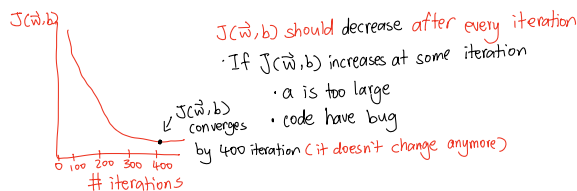 J(w⃗,b)
J(w⃗,b) should decrease after every iteration
· If J(w⃗,b) increases at some iteration
· a is too large
· code have bug
J(w⃗,b)
converges
by 400 iteration (it doesn't change anymore)
0 100 200 300 400
# iterations